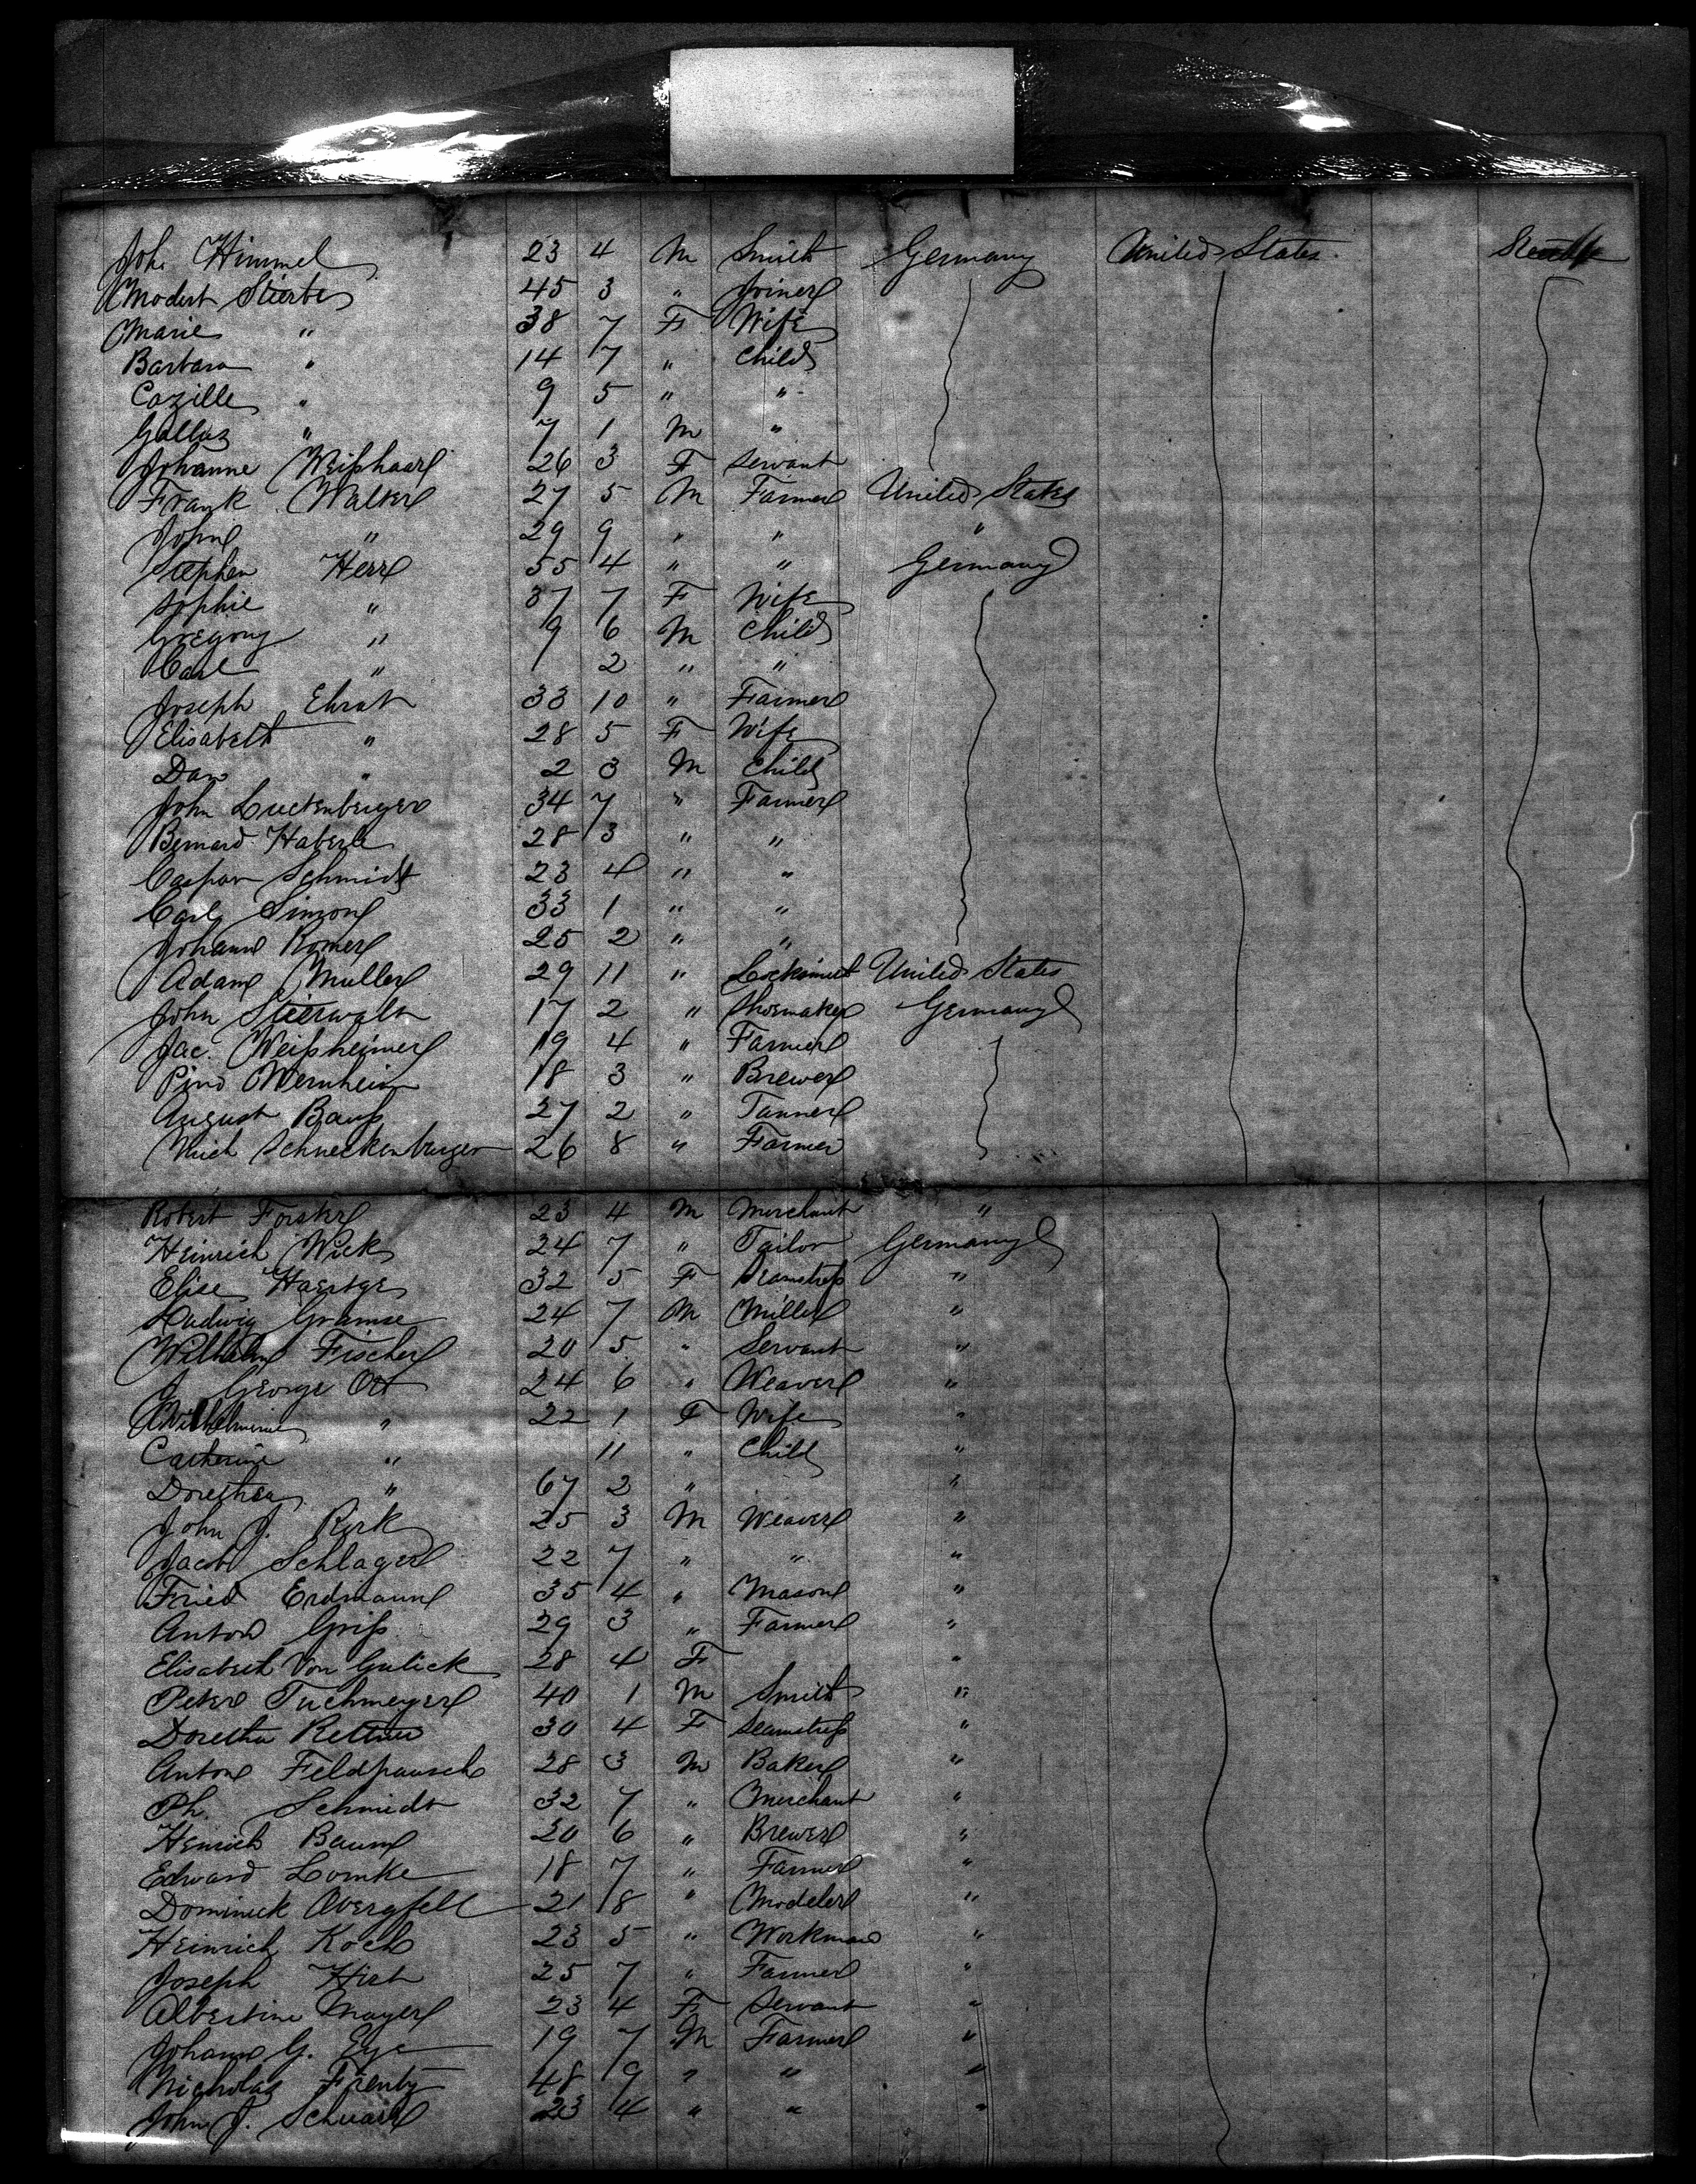 Joh. Himmel 23 4 M Smith Germany United States
Modest Stierbe 45 3 " Joiner
Marie " 38 7 F Wife
Barbara " 14 7 " Child
Cazille " 9 5 " "
Gallus " 7 1 M "
Johanne Weißhaar 26 3 F Servant
Frank Walter 27 5 M Farmer United States
John " 29 9 " " "
Stephen Herr 55 4 " " Germany
Sophie " 37 7 F Wife
Gregory " 9 6 M Child
Carl " 1 2 " "
Joseph Ehrat 33 10 " Farmer
Elisabeth " 28 5 F Wife
Dan " 2 3 M Child
John Luckenberger 34 7 " Farmer
Bernard Haberle 28 3 " "
Caspar Schmidt 23 4 " "
Carl Simon 33 1 " "
Johann Romer 25 2 " "
Adam Muller 29 11 " Locksmith United States
John Stierwalt 17 2 " Shoemaker Germany
Jac. Weißheimer 19 4 " Farmer
Wernheim 18 3 " Brewer
August Bauß 27 2 " Tanner
Mich Schneckenburger 26 8 " Farmer
Robert Forster 23 4 M Merchant "
Heinrich Wick 24 7 " Tailor Germany
Elise Haertge 32 5 F Seamstreß "
Ludwig Gramse 24 7 M Miller "
Wilhelm Fischer 20 5 " Servant "
J. George Ott 24 6 " Weaver "
Wilhelmine " 22 1 F Wife "
Catherine " 11 " Child "
Dorethea " 67 2 " "
John J. Rirk 25 3 M Weaver "
Jacob Schlager 22 7 " " "
Fried Erdmann 35 4 " Mason "
Anton Griß 29 3 " Farmer "
Elisabeth Von Gulick 28 4 F "
Peter Tuchmeyer 40 1 M Smith "
Doretha 30 4 F Seamstreß "
Anton Feldpausch 28 3 M Baker "
Ph. Schmidt 32 7 " Merchant "
Henrich Baum 20 6 " Brewer "
Edward Lomke 18 7 " Farmer "
Dominick Obergfell 21 8 " Modeler "
Heinrich Koch 23 5 " Workman "
Joseph Hirt 25 7 " Farmer "
Albertine Mayer 23 4 F Servant "
Johann G. Eye 19 7 M Farmer "
Nicholas 48 9 " " "
John J. Schuarl 23 4 " " "